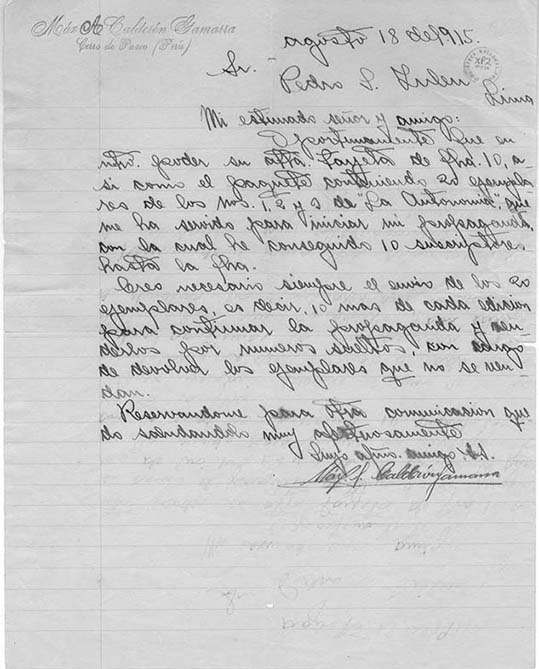 Máx A Calderón Gamarra
Cerro de Pasco (Perú)
agosto 18 del 915.
Sr.
Pedro S. Zulen
Lima
Mi estimado señor y amigo:
Oportunamente fue en
mi poder su atta. tarjeta de fha. 10, a
si como el paquete conteniendo 20 ejempla
res de los Nos. 1, 2 y 3 de "La Autonomía", que
me ha servido para iniciar mi propaganda,
con la cual he conseguido 10 suscriptores
hasta la fha.
Creo necesario siempre el envio de los 20
ejemplares, es decir, 10 mas de cada edicion
para continuar la propaganda y ven
derlos por numeros sueltos, con cargo
de devolver los ejemplares que no se ven
dan.
Reservandome para otra comunicacion que
do saludandolo muy afectuosamente
Suyo afmo. amigo S.S.
Max A. Calderón Gamarra